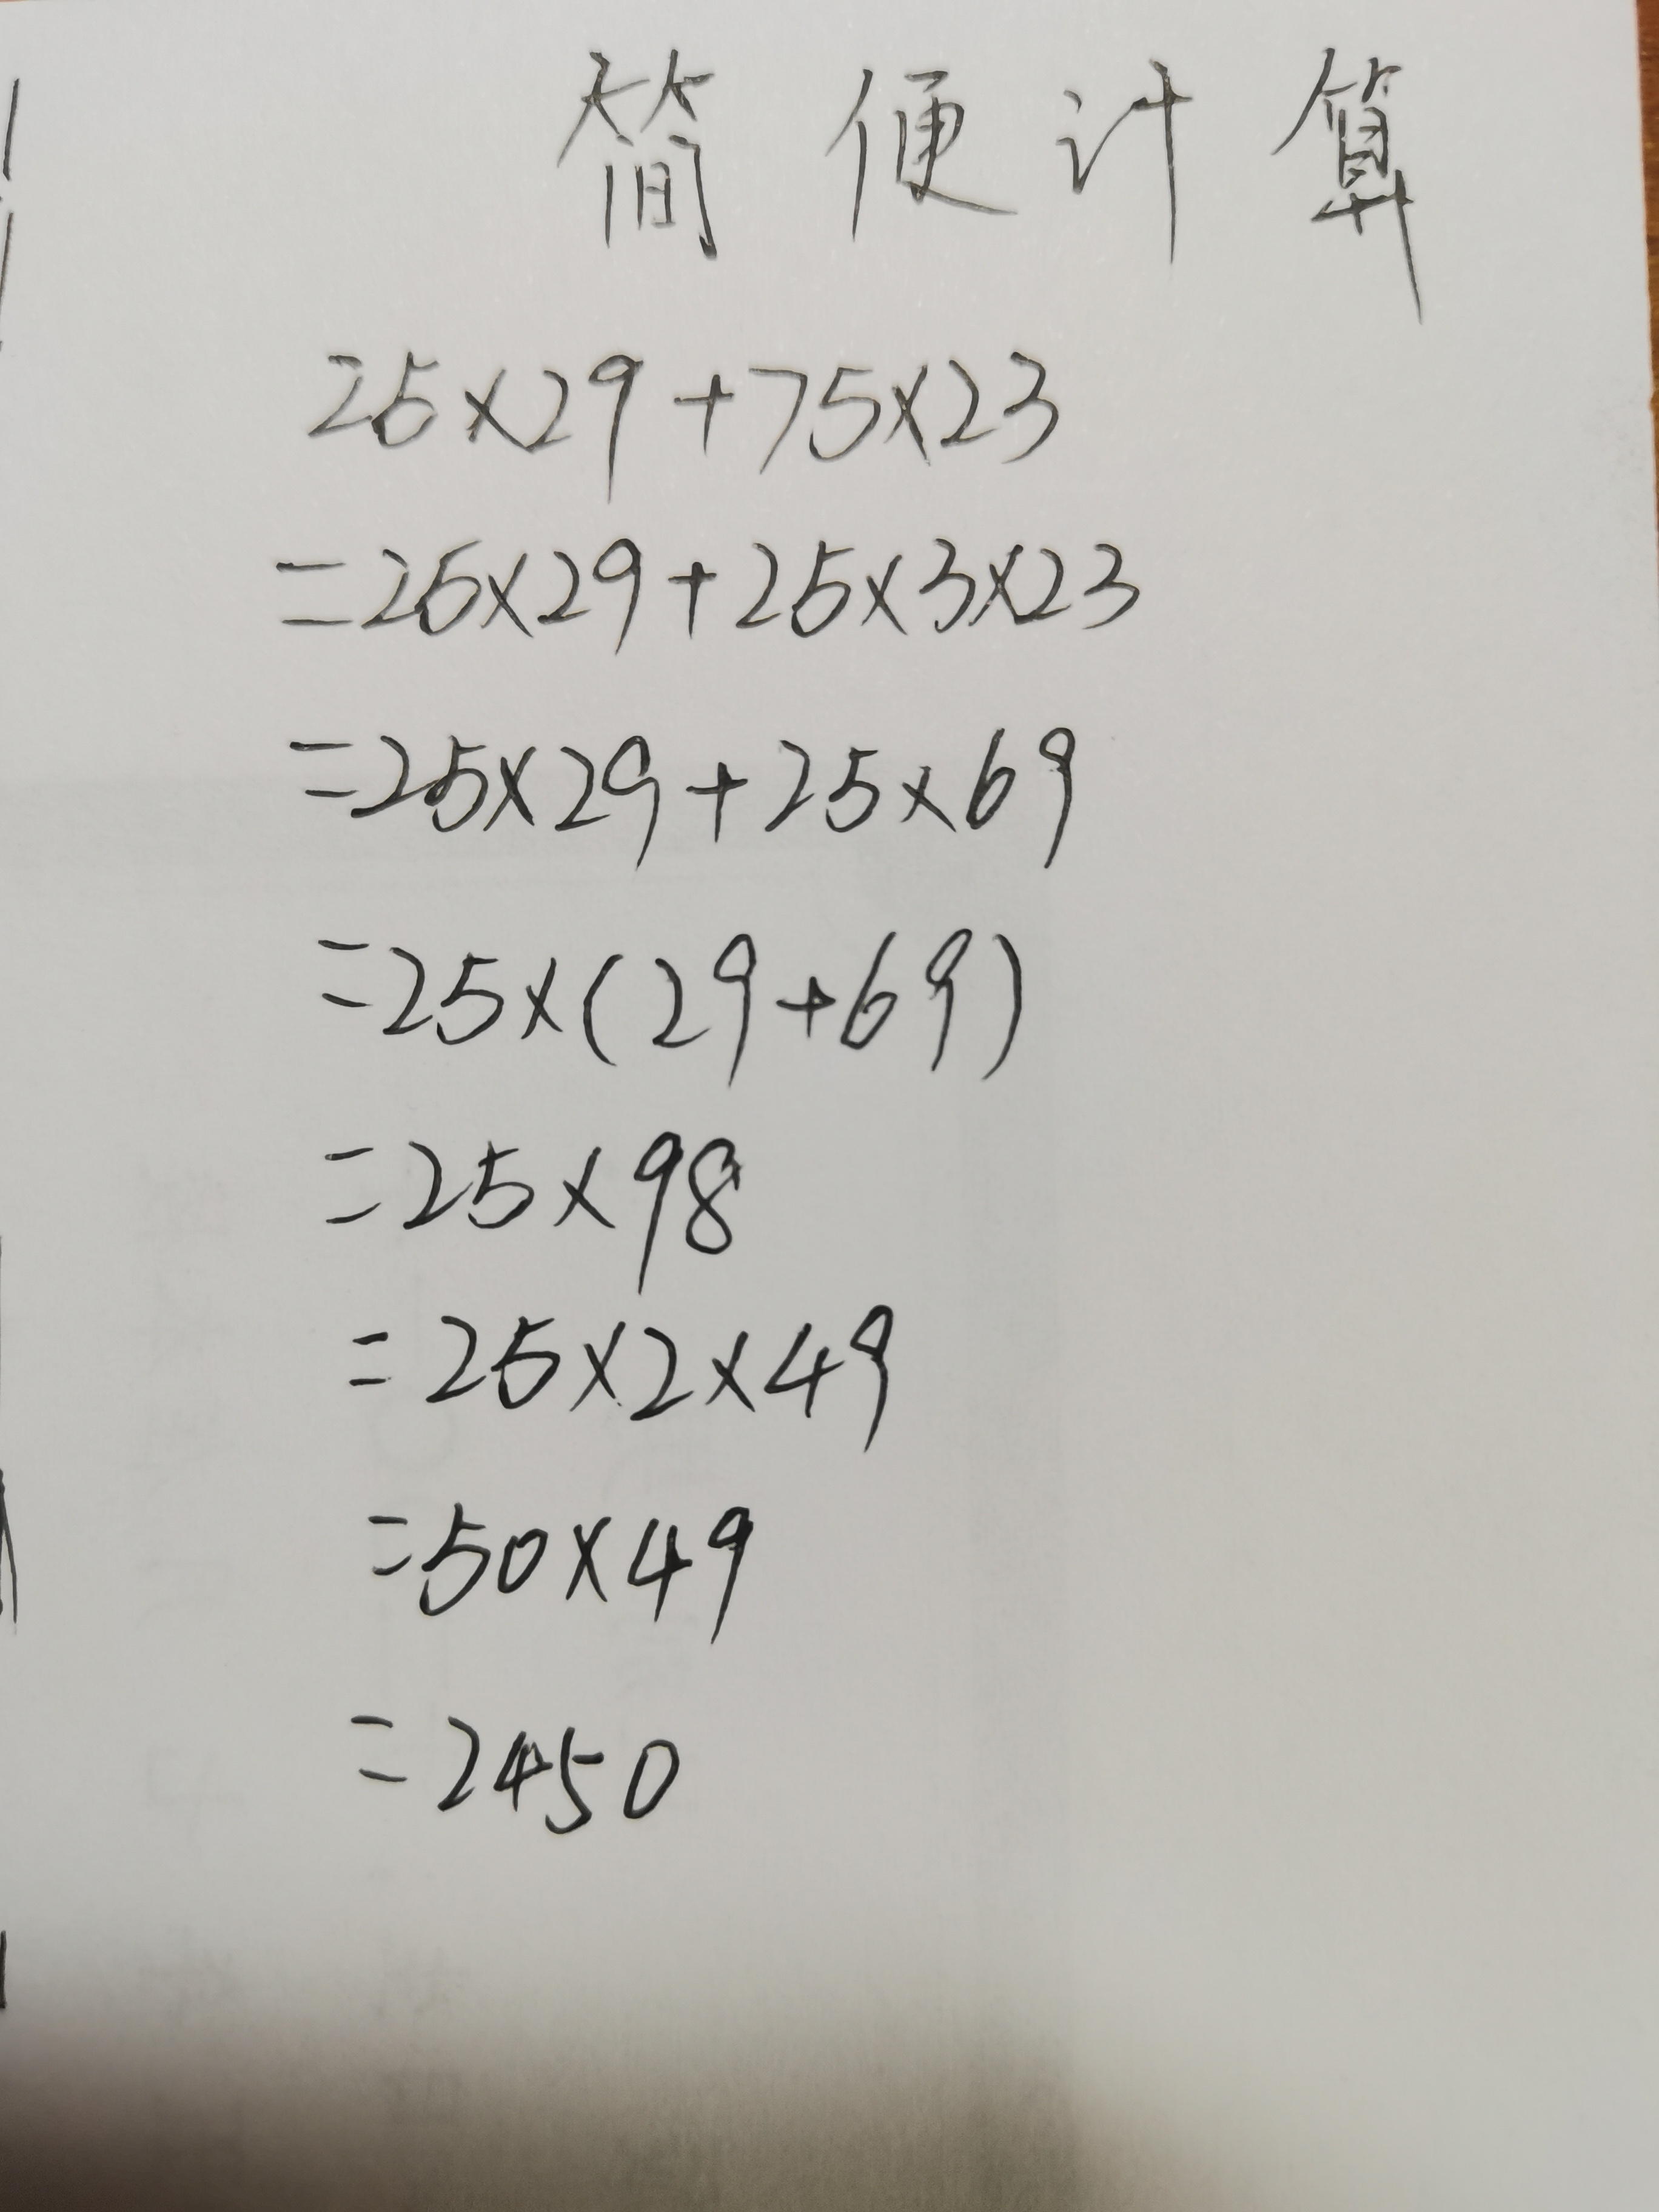 简便计算
25×29+75×23
=25×29+25×3×23
=25×29+25×69
=25×(29+69)
=25×98
=25×2×49
=50×49
=2450